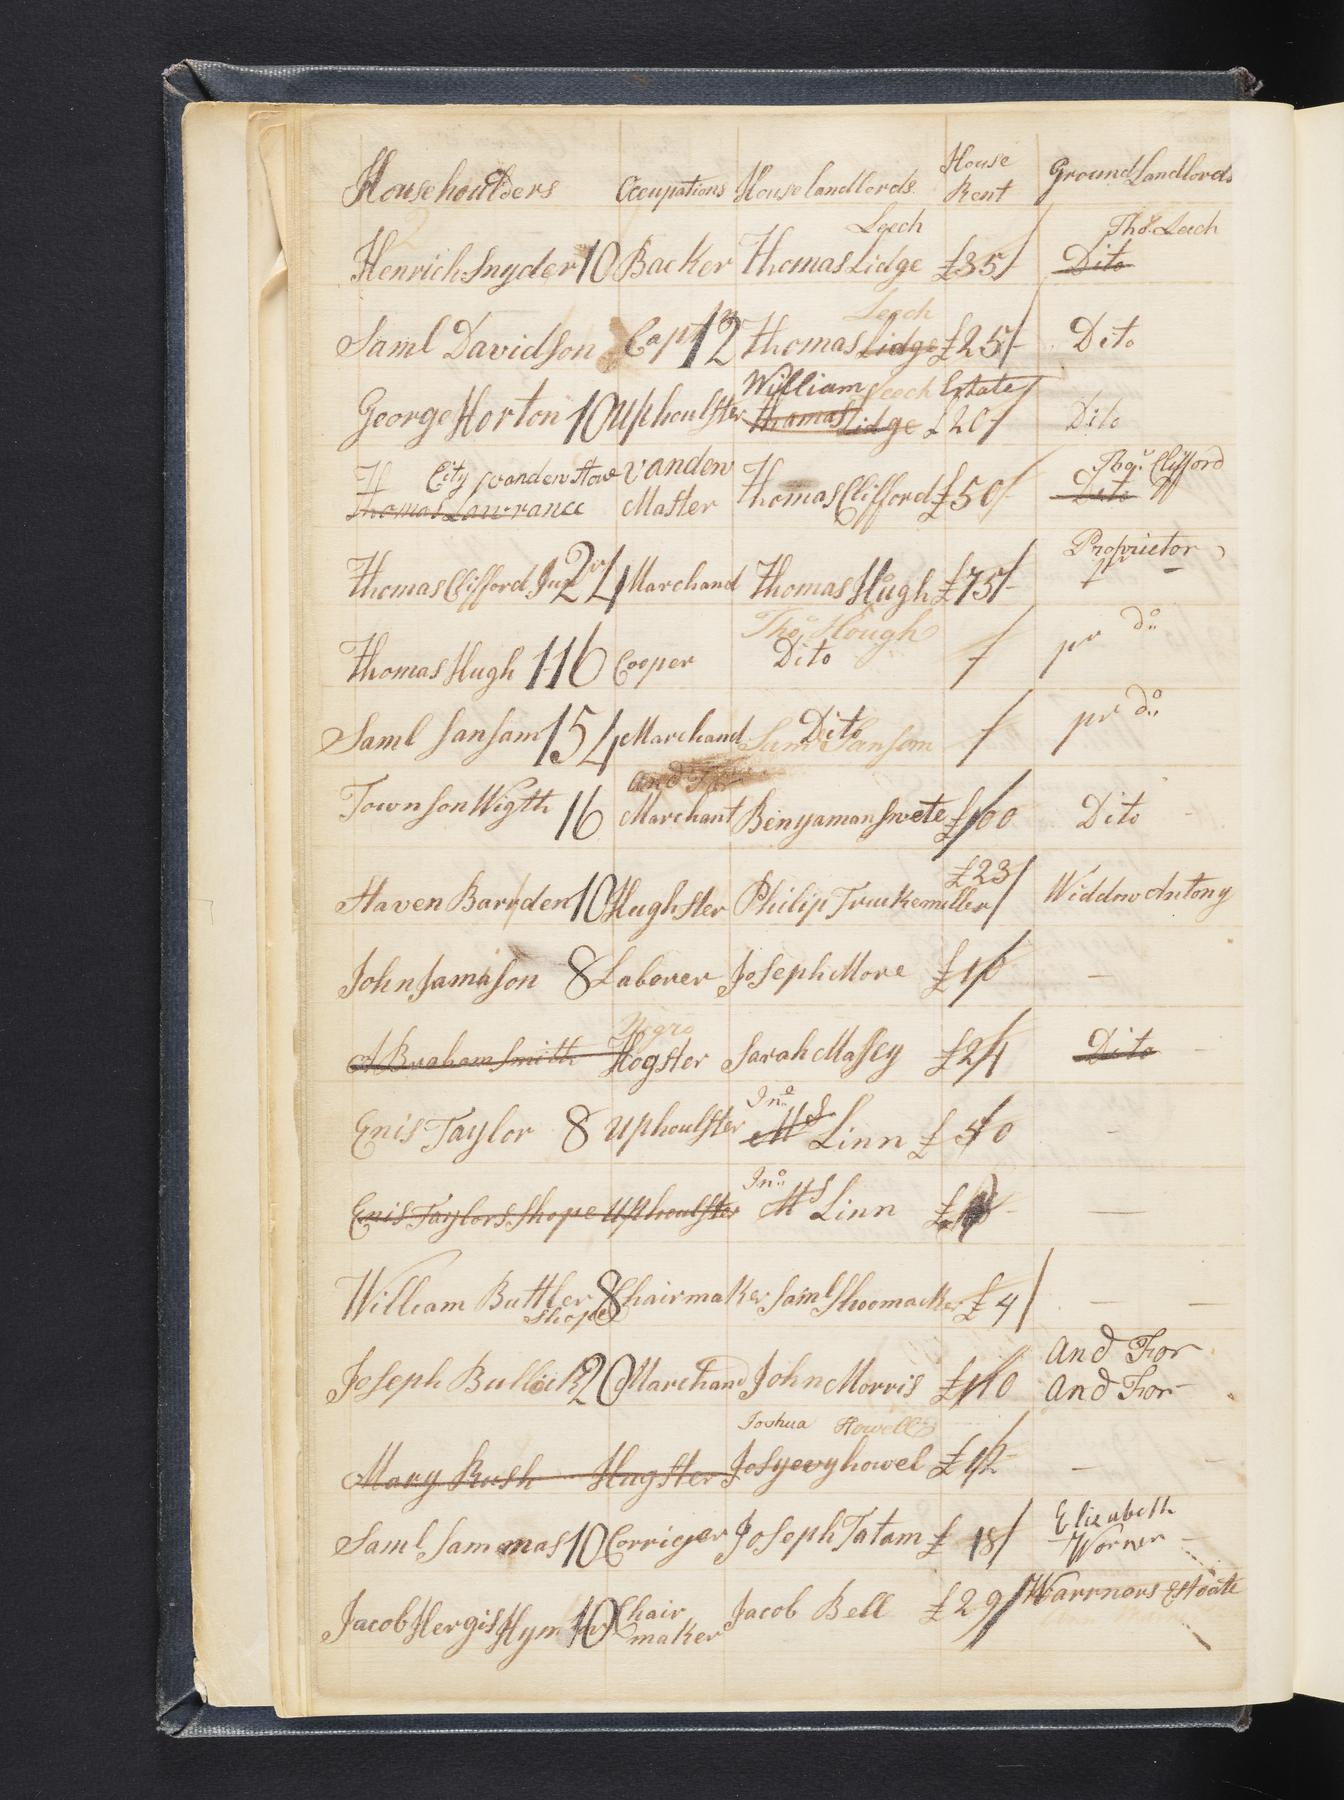 Househoulders Occupations House landlords House Rent Ground Landlords
Leech Thos. Leech
Henrich Snyder 10 Backer Thomas Lidge £35/ Dito
Leech
Saml Davidson Capt 12 Thomas Lidge £25/- Dito
William Leech Estate
George Horton 10 Uphoulster Thomas Lidge £20/- Dito
City vanden Vanden Clifford
Thomas Lawrance Master Thomas Clifford £50/- Dito
Proprietor
Thomas Clifford Junr 24 Marchand Thomas Hugh £75/-
Thos. Hough
Thomas Hugh 116 Cooper Dito pr do
Saml Sansam 154 Marchand Dito Saml Sansom pr do
and For
Townson Wigth 16 Marchant Benyaman Swete £100 Dito
£23/
Haven Barrden 10 Hughster Philip Truckemuller Widdow Antony
John Jamison 8 Laborer Joseph More £10 —
Negro
Abraham Smith Hogster Sarah Massey £24 Dito
Jno.
Enis Taylor 8 Uphoulster Ms Linn £40 -
Jno.
Enis Taylors Shope Uphoulster Ms Linn —
William Buttler 8 Chairmaker Saml Shoomacker £4/ — —
Shope
and For
Joseph Bullock 20 Marchand John Morris £110 and For
Joshua Howell
Mary Rush Hugster Josyevy howel £12 —
Elizabeth
Saml Sammas 10 Corriger Joseph Tatam £18/ Worner
Jacob Hergis 10 Chair maker Jacob Bell £29/ Warrnors Estate